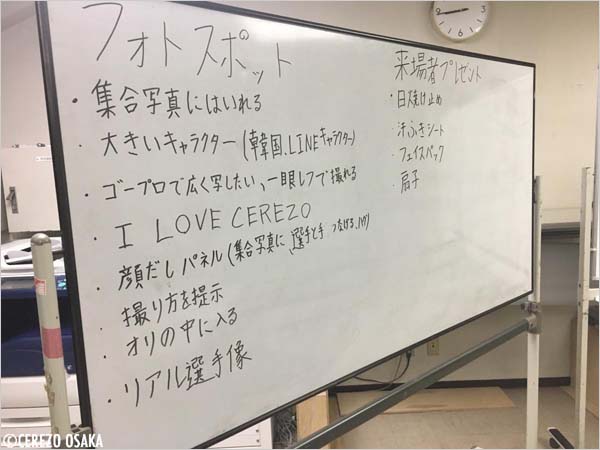 フォトスポット
・集合写真にはいれる
・大きいキャラクター(韓国.LINEキャラクター)
・ゴープロで広く写したい、一眼レフで撮れる
・I LOVE CEREZO
・顔だしパネル(集合写真に、選手と手つなげる、ハグ)
・撮り方を提示
・オリの中に入る
・リアル選手像
来場者プレゼント
・日焼け止め
・汗ふきシート
・フェイスパック
・扇子
©CEREZO OSAKA